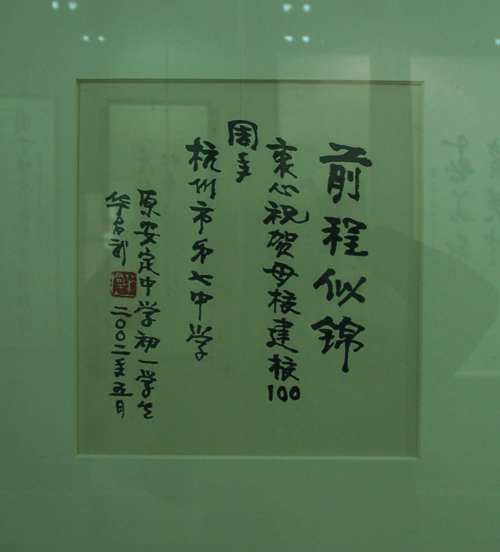 前程似锦
衷心祝贺母校建校100
周年
杭州市第七中学
原安定中学初一学生
华君武
二〇〇二年五月